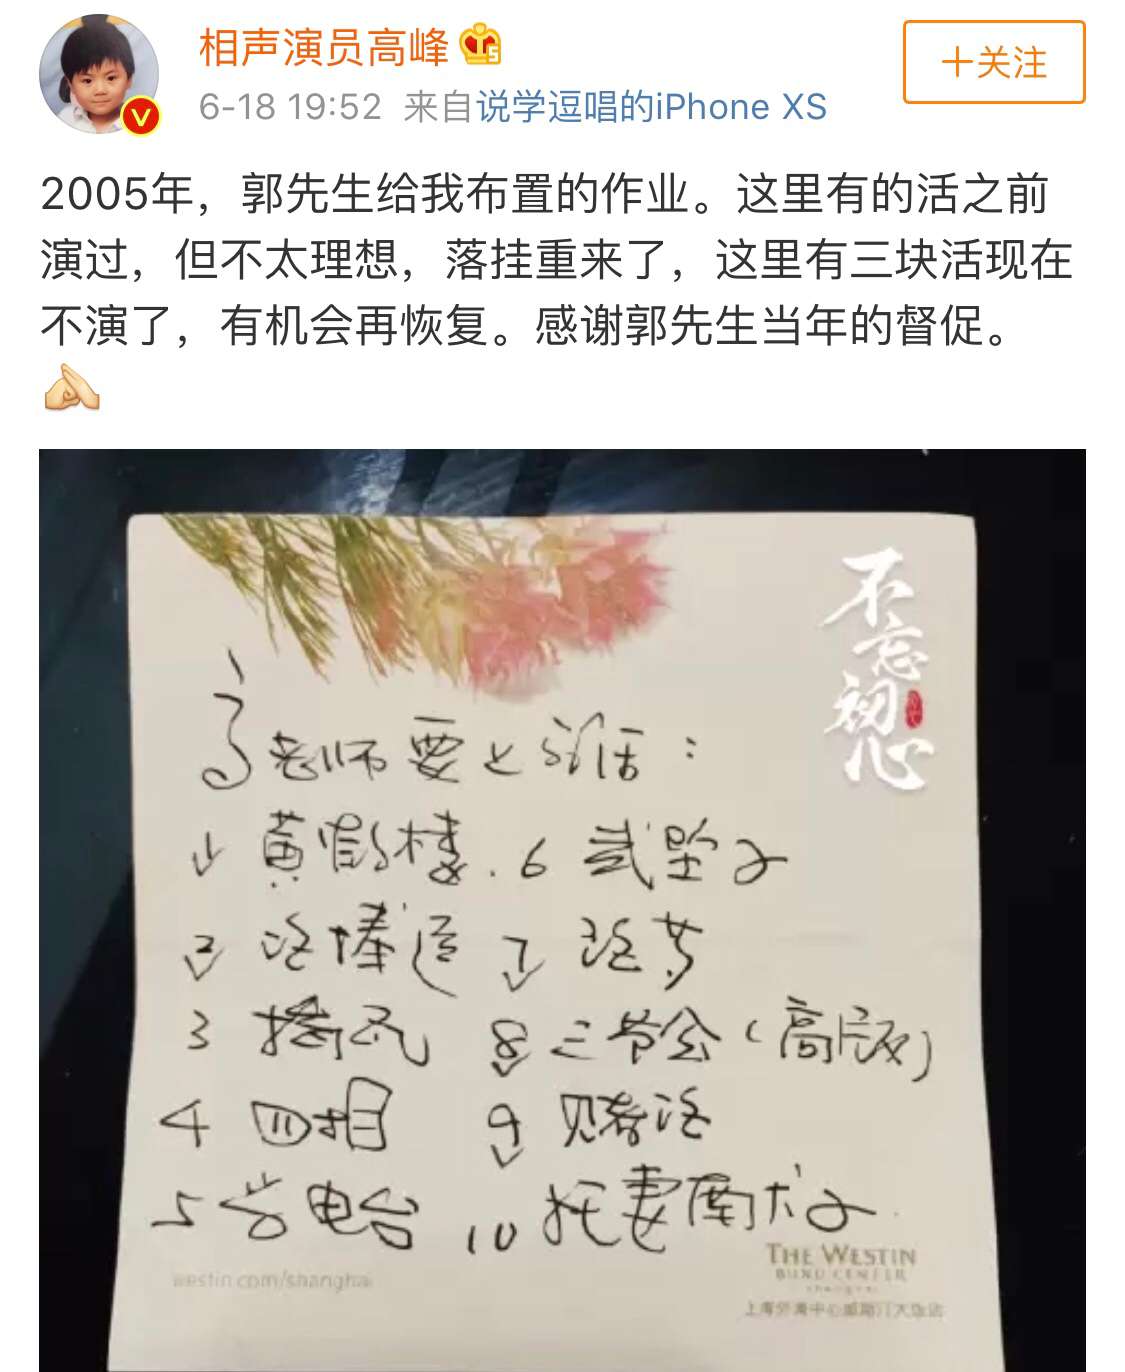 相声演员高峰
6-18 19:52 来自说学逗唱的iPhone XS
十关注
2005年，郭先生给我布置的作业。这里有的活之前
演过，但不太理想，落挂重来了，这里有三块活现在
不演了，有机会再恢复。感谢郭先生当年的督促。
不忘初心
高老师要上的活：
1 黄鹤楼. 6 武坠子
2 论捧逗 7 论梦
3 捂风 8 三节会（高版）
4 四相 9 赌论
5 学电台 10 托妻南术子
westin.com/shanghai
THE WESTIN
BUND CENTER
shanghai
上海外滩中心威斯汀大饭店